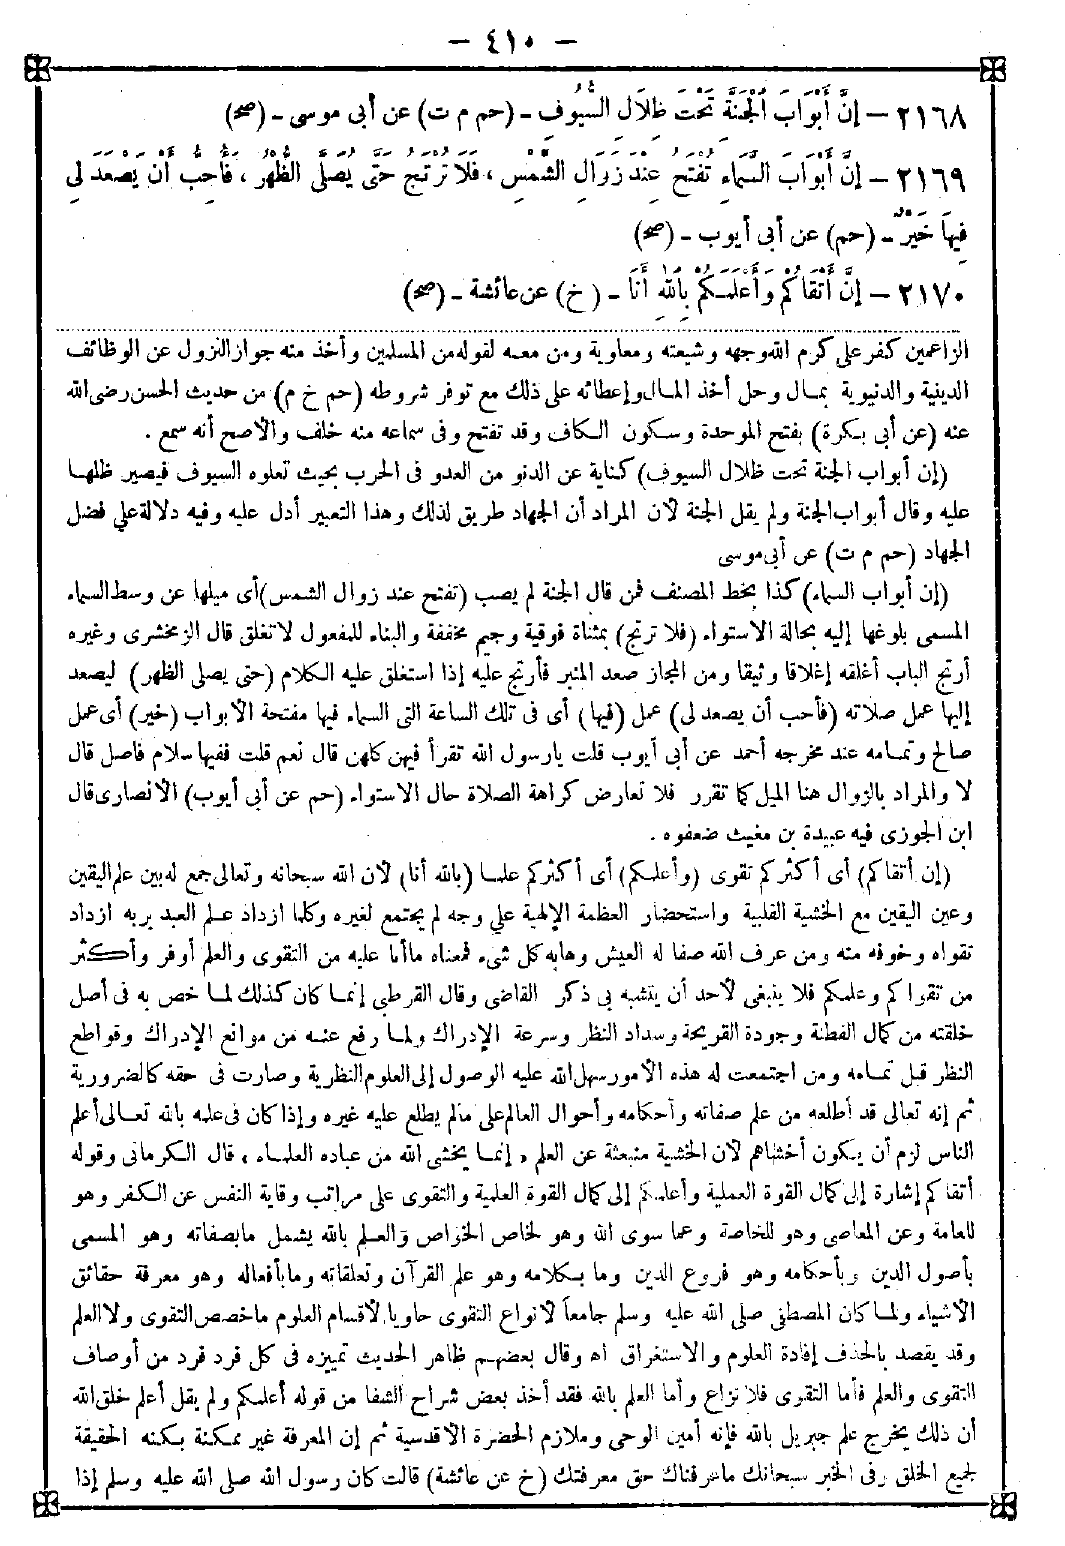 - ٤١٠ -
٢١٦٨ - إِنَّ أَبْوَابَ الْجَنَّةِ تَحْتَ ظِلَالِ السُّيُوفِ - (حم م ت) عن أبى موسى - (صح)
٢١٦٩ - إِنَّ أَبْوَابَ السَّمَاءِ تُفْتَحُ عِنْدَ زَوَالِ الشَّمْسِ ، فَلَا تُرْتَجُ حَتَّى يُصَلَّى الظُّهْرُ ، فَأُحِبُّ أَنْ يَصْعَدَ لِى
فِيهَا خَيْرٌ - (حم) عن أبى أيوب - (صح)
٢١٧٠ - إِنَّ أَتْقَاكُمْ وَأَعْلَمَكُمْ بِاللهِ أَنَا - (خ) عن عائشة - (صح)
الزاعمين كفر على كرم الله وجهه وشيعته ومعاوية ومن معه لقوله من المسلمين وأخذ منه جواز النزول عن الوظائف
الدينية والدنيوية بمال وحل أخذ المال وإعطائه على ذلك مع توفر شروطه (حم خ م) من حديث الحسن رضى الله
عنه (عن أبى بكرة) بفتح الموحدة وسكون الكاف وقد تفتح وفى سماعه منه خلف والأصح أنه سمع .
(إن أبواب الجنة تحت ظلال السيوف) كناية عن الدنو من العدو فى الحرب بحيث تعلوه السيوف فيصير ظلها
عليه وقال أبواب الجنة ولم يقل الجنة لأن المراد أن الجهاد طريق لذلك وهذا التعبير أدل عليه وفيه دلالة على فضل
الجهاد (حم م ت) عن أبى موسى
(إن أبواب السماء) كذا بخط المصنف فمن قال الجنة لم يصب (تفتح عند زوال الشمس) أى ميلها عن وسط السماء
المسمى بلوغها إليه بحالة الاستواء (فلا ترتج) بمثناة فوقية وجيم مخففة والبناء للمفعول لا تغلق قال الزمخشرى وغيره
أرتج الباب أغلقه إغلاقا وثيقا ومن المجاز صعد المنبر فأرتج عليه إذا استغلق عليه الكلام (حتى يصلى الظهر) ليصعد
إليها عمل صلاته (فأحب أن يصعد لى) عمل (فيها) أى فى تلك الساعة التى السماء فيها مفتحة الأبواب (خير) أى عمل
صالح وتمامه عند مخرجه أحمد عن أبى أيوب قلت يارسول الله تقرأ فيهن كلهن قال نعم قلت ففيها سلام فاصل قال
لا والمراد بالزوال هنا الميل كما تقرر فلا تعارض كراهة الصلاة حال الاستواء (حم عن أبى أيوب) الأنصارى قال
ابن الجوزى فيه عبيدة بن مغيث ضعفوه .
(إن أتقاكم) أى أكثركم تقوى (وأعلمكم) أى أكثركم علما (بالله أنا) لأن الله سبحانه وتعالى جمع له بين علم اليقين
وعين اليقين مع الخشية القلبية واستحضار العظمة الإلهية على وجه لم يجتمع لغيره وكلما ازداد علم العبد بربه ازداد
تقواه وخوفه منه ومن عرف الله صفا له العيش وهابه كل شىء فمعناه ماأنا عليه من التقوى والعلم أوفر وأكثر
من تقواكم وعلمكم فلا ينبغى لأحد أن يتشبه بى ذكر القاضى وقال القرطبى إنما كان كذلك لما خص به فى أصل
خلقته من كمال الفطنة وجودة القريحة وسداد النظر وسرعة الإدراك ولما رفع عنه من موانع الإدراك وقواطع
النظر قبل تمامه ومن اجتمعت له هذه الأمور سهل الله عليه الوصول إلى العلوم النظرية وصارت فى حقه كالضرورية
ثم إنه تعالى قد أطلعه من علم صفاته وأحكامه وأحوال العالم على مالم يطلع عليه غيره وإذا كان فى علمه بالله تعالى أعلم
الناس لزم أن يكون أخشاهم لأن الخشية منبعثة عن العلم ، إنما يخشى الله من عباده العلماء ، قال الكرمانى وقوله
أتقاكم إشارة إلى كمال القوة العملية وأعلمكم إلى كمال القوة العلمية والتقوى على مراتب وقاية النفس عن الكفر وهو
للعامة وعن المعاصى وهو للخاصة وعما سوى الله وهو لخاص الخواص والعلم بالله يشمل مابصفاته وهو المسمى
بأصول الدين وبأحكامه وهو فروع الدين وما بكلامه وهو علم القرآن وتعلقاته ومابأفعاله وهو معرفة حقائق
الأشياء ولما كان المصطفى صلى الله عليه وسلم جامعاً لأنواع التقوى حاويا لأقسام العلوم ماخصص التقوى ولا العلم
وقد يقصد بالحذف إفادة العلوم والاستغراق اه وقال بعضهم ظاهر الحديث تمييزه فى كل فرد فرد من أوصاف
التقوى والعلم فأما التقوى فلا نزاع وأما العلم بالله فقد أخذ بعض شراح الشفا من قوله أعلمكم ولم يقل أعلم خلق الله
أن ذلك يخرج علم جبريل بالله فإنه أمين الوحى وملازم الحضرة الأقدسية ثم إن المعرفة غير ممكنة بكنه الحقيقة
لجميع الخلق وفى الخبر سبحانك ماعرفناك حق معرفتك (خ عن عائشة) قالت كان رسول الله صلى الله عليه وسلم إذا